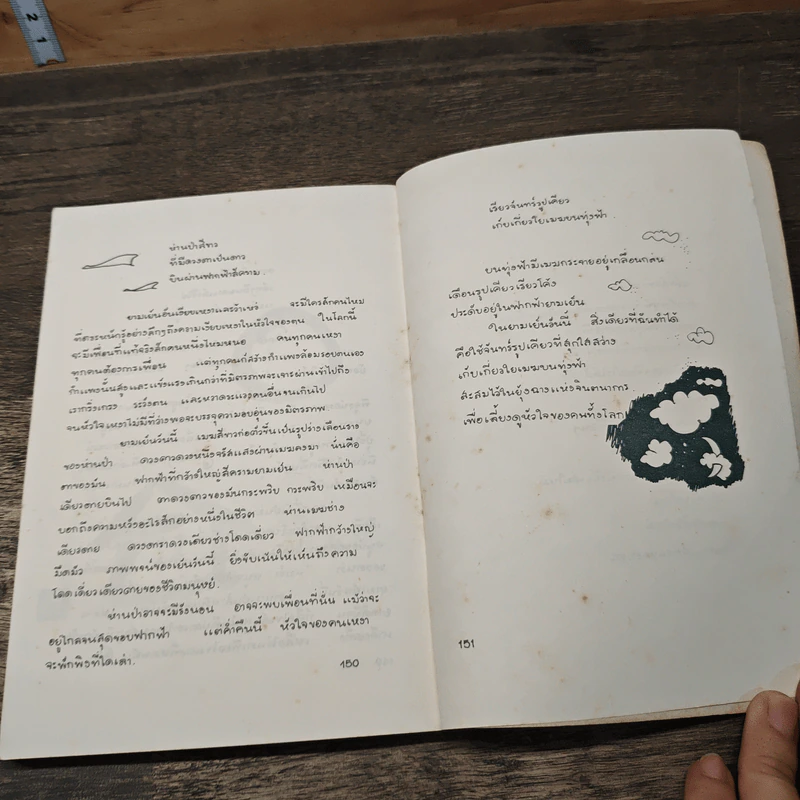 2
1
ห่านป่าสีขาว
ที่มีดวงตาเป็นดาว
บินผ่านฟากฟ้าสีคราม
ยามเย็นอันเงียบเหงาและว้าเหว่ จะมีใครสักคนไหม
ที่ตระหนักรู้อย่างลึกๆถึงความเงียบเหงาในหัวใจของตน ในโลกนี้
จะมีเพื่อนที่แท้จริงสักคนหนึ่งไหมหนอ คนทุกคนเหงา
ทุกคนต้องการเพื่อน แต่ทุกคนก็สร้างกำแพงล้อมรอบตนเอง
กำแพงนั้นสูงและแข็งแรงเกินกว่าที่มิตรภาพจะเจาะผ่านเข้าไปถึง
เราเกรงกลัว ระวังตน และหวาดระแวงคนอื่นจนเกินไป
จนหัวใจเหงาไม่มีที่ว่างพอจะบรรจุความอบอุ่นของมิตรภาพ
ยามเย็นวันนี้ เมฆสีขาวก่อตัวขึ้นเป็นรูปร่างเคลื่อนวาง
ของห่านป่า ดวงดาวดวงหนึ่งจรัสแสงผ่านเมฆลงมา นั่นคือ
ตาของมัน ฟากฟ้าที่กว้างใหญ่สีครามยามเย็น ห่านป่า
เดียวดายบินไป ตาดวงดาวของมันกระพริบ กระพริบ เหมือนจะ
บอกถึงความหวังอะไรสักอย่างหนึ่งในชีวิต ห่านเมฆช่าง
เดียวดาย ดวงดาราดวงเดียวช่างโดดเดี่ยว ฟากฟ้ากว้างใหญ่
มืดมัว ภาพพจน์ของเย็นวันนี้ ยิ่งขับเน้นให้เห็นถึงความ
โดดเดี่ยวเดียวดายของชีวิตมนุษย์.
ห่านป่าอาจจะมีรังนอน อาจจะพบเพื่อนที่นั่น แม้ว่าจะ
อยู่ไกลจนสุดขอบฟากฟ้า แต่ค่ำคืนนี้ หัวใจของคนเหงา
จะพักพิงที่ใดเล่า.
150
เรียวจันทร์รูปเคียว
เก็บเกี่ยวใยเมฆบนทุ่งฟ้า
บนทุ่งฟ้ามีเมฆกระจายอยู่เกลื่อนกล่น
เดือนรูปเคียวเรียวโค้ง
ประดับอยู่ในฟากฟ้ายามเย็น
ในยามเย็นวันนี้ สิ่งเดียวที่ฉันทำได้
คือใช้จันทร์รูปเคียวที่สุกใสสว่าง
เก็บเกี่ยวใยเมฆบนทุ่งฟ้า
สะสมไว้ในยุ้งฉางแห่งจินตนาการ
เพื่อเลี้ยงดูหัวใจของคนทั้งโลก
151